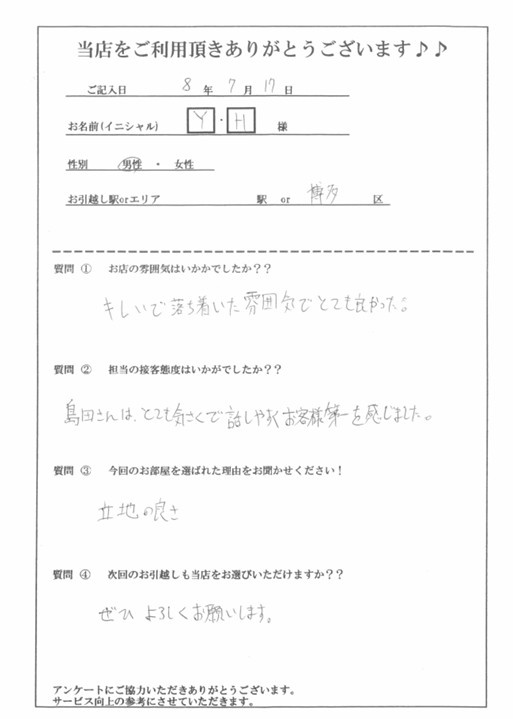 当店をご利用頂きありがとうございます♪♪
ご記入日 8 年 7 月 17 日
お名前(イニシャル) Y ・ H 様
性別 男性 ・ 女性
お引越し駅orエリア 駅 or 博多 区
質問 ① お店の雰囲気はいかかでしたか??
キレいで落ち着いた雰囲気でとても良かった。
質問 ② 担当の接客態度はいかがでしたか??
島田さんは、とても気さくで話しやすくお客様第一を感じました。
質問 ③ 今回のお部屋を選ばれた理由をお聞かせください!
立地の良さ
質問 ④ 次回のお引越しも当店をお選びいただけますか??
ぜひ よろしくお願いします。
アンケートにご協力いただきありがとうございます。
サービス向上の参考にさせていただきます。